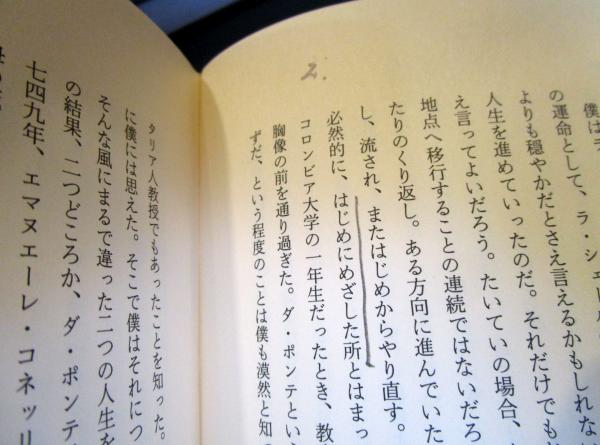 2.
僕は
の運命として、ラ・シェ
よりも穏やかだとさえ言えるかもしれない
人生を進めていったのだ。それだけでも
え言ってよいだろう。たいていの場合、
地点へ移行することの連続ではないだろ
たりのくり返し。ある方向に進んでいた
し、流され、またはじめからやり直す。
必然的に、はじめにめざした所とはまっ
コロンビア大学の一年生だったとき、教
胸像の前を通り過ぎた。ダ・ポンテとい
ずだ、という程度のことは僕も漠然と知
タリア人教授でもあったことを知った。
に僕には思えた。そこで僕はそれにつ
そんな風にまるで違った二つの人生を
の結果、二つどころか、ダ・ポンテ
七四九年、エマヌエーレ・コネッリ